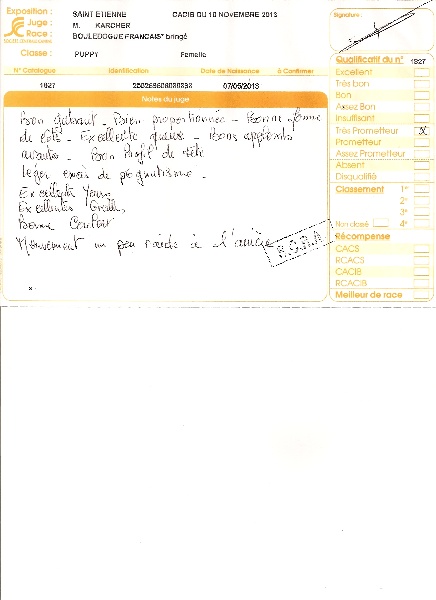 Exposition : SAINT ETIENNE CACIB DU 10 NOVEMBRE 2013
Juge : M. KARCHER
Race : BOULEDOGUE FRANCAIS* bringé
Classe : PUPPY Femelle
N° Catalogue Identification Date de Naissance à Confirmer
1827 07/05/2013
Notes du juge
Bon gabarit - Bien proportionnée - Bonne forme
de tête - Excellente queue - Bons applombs
avants - Bon Profil de tête
léger excès de prognatisme -
Excellents Yeux,
Excellentes Oreilles
Bonne Couleur
Mouvement un peu raide à l'arrière
Signature :
Qualificatif du n° 1827
Excellent
Très bon
Bon
Assez Bon
Insuffisant
Très Prometteur X
Prometteur
Assez Prometteur
Absent
Disqualifié
Classement 1er
2e
3e
Non classé 4e
Récompense
CACS
RCACS
CACIB
RCACIB
Meilleur de race